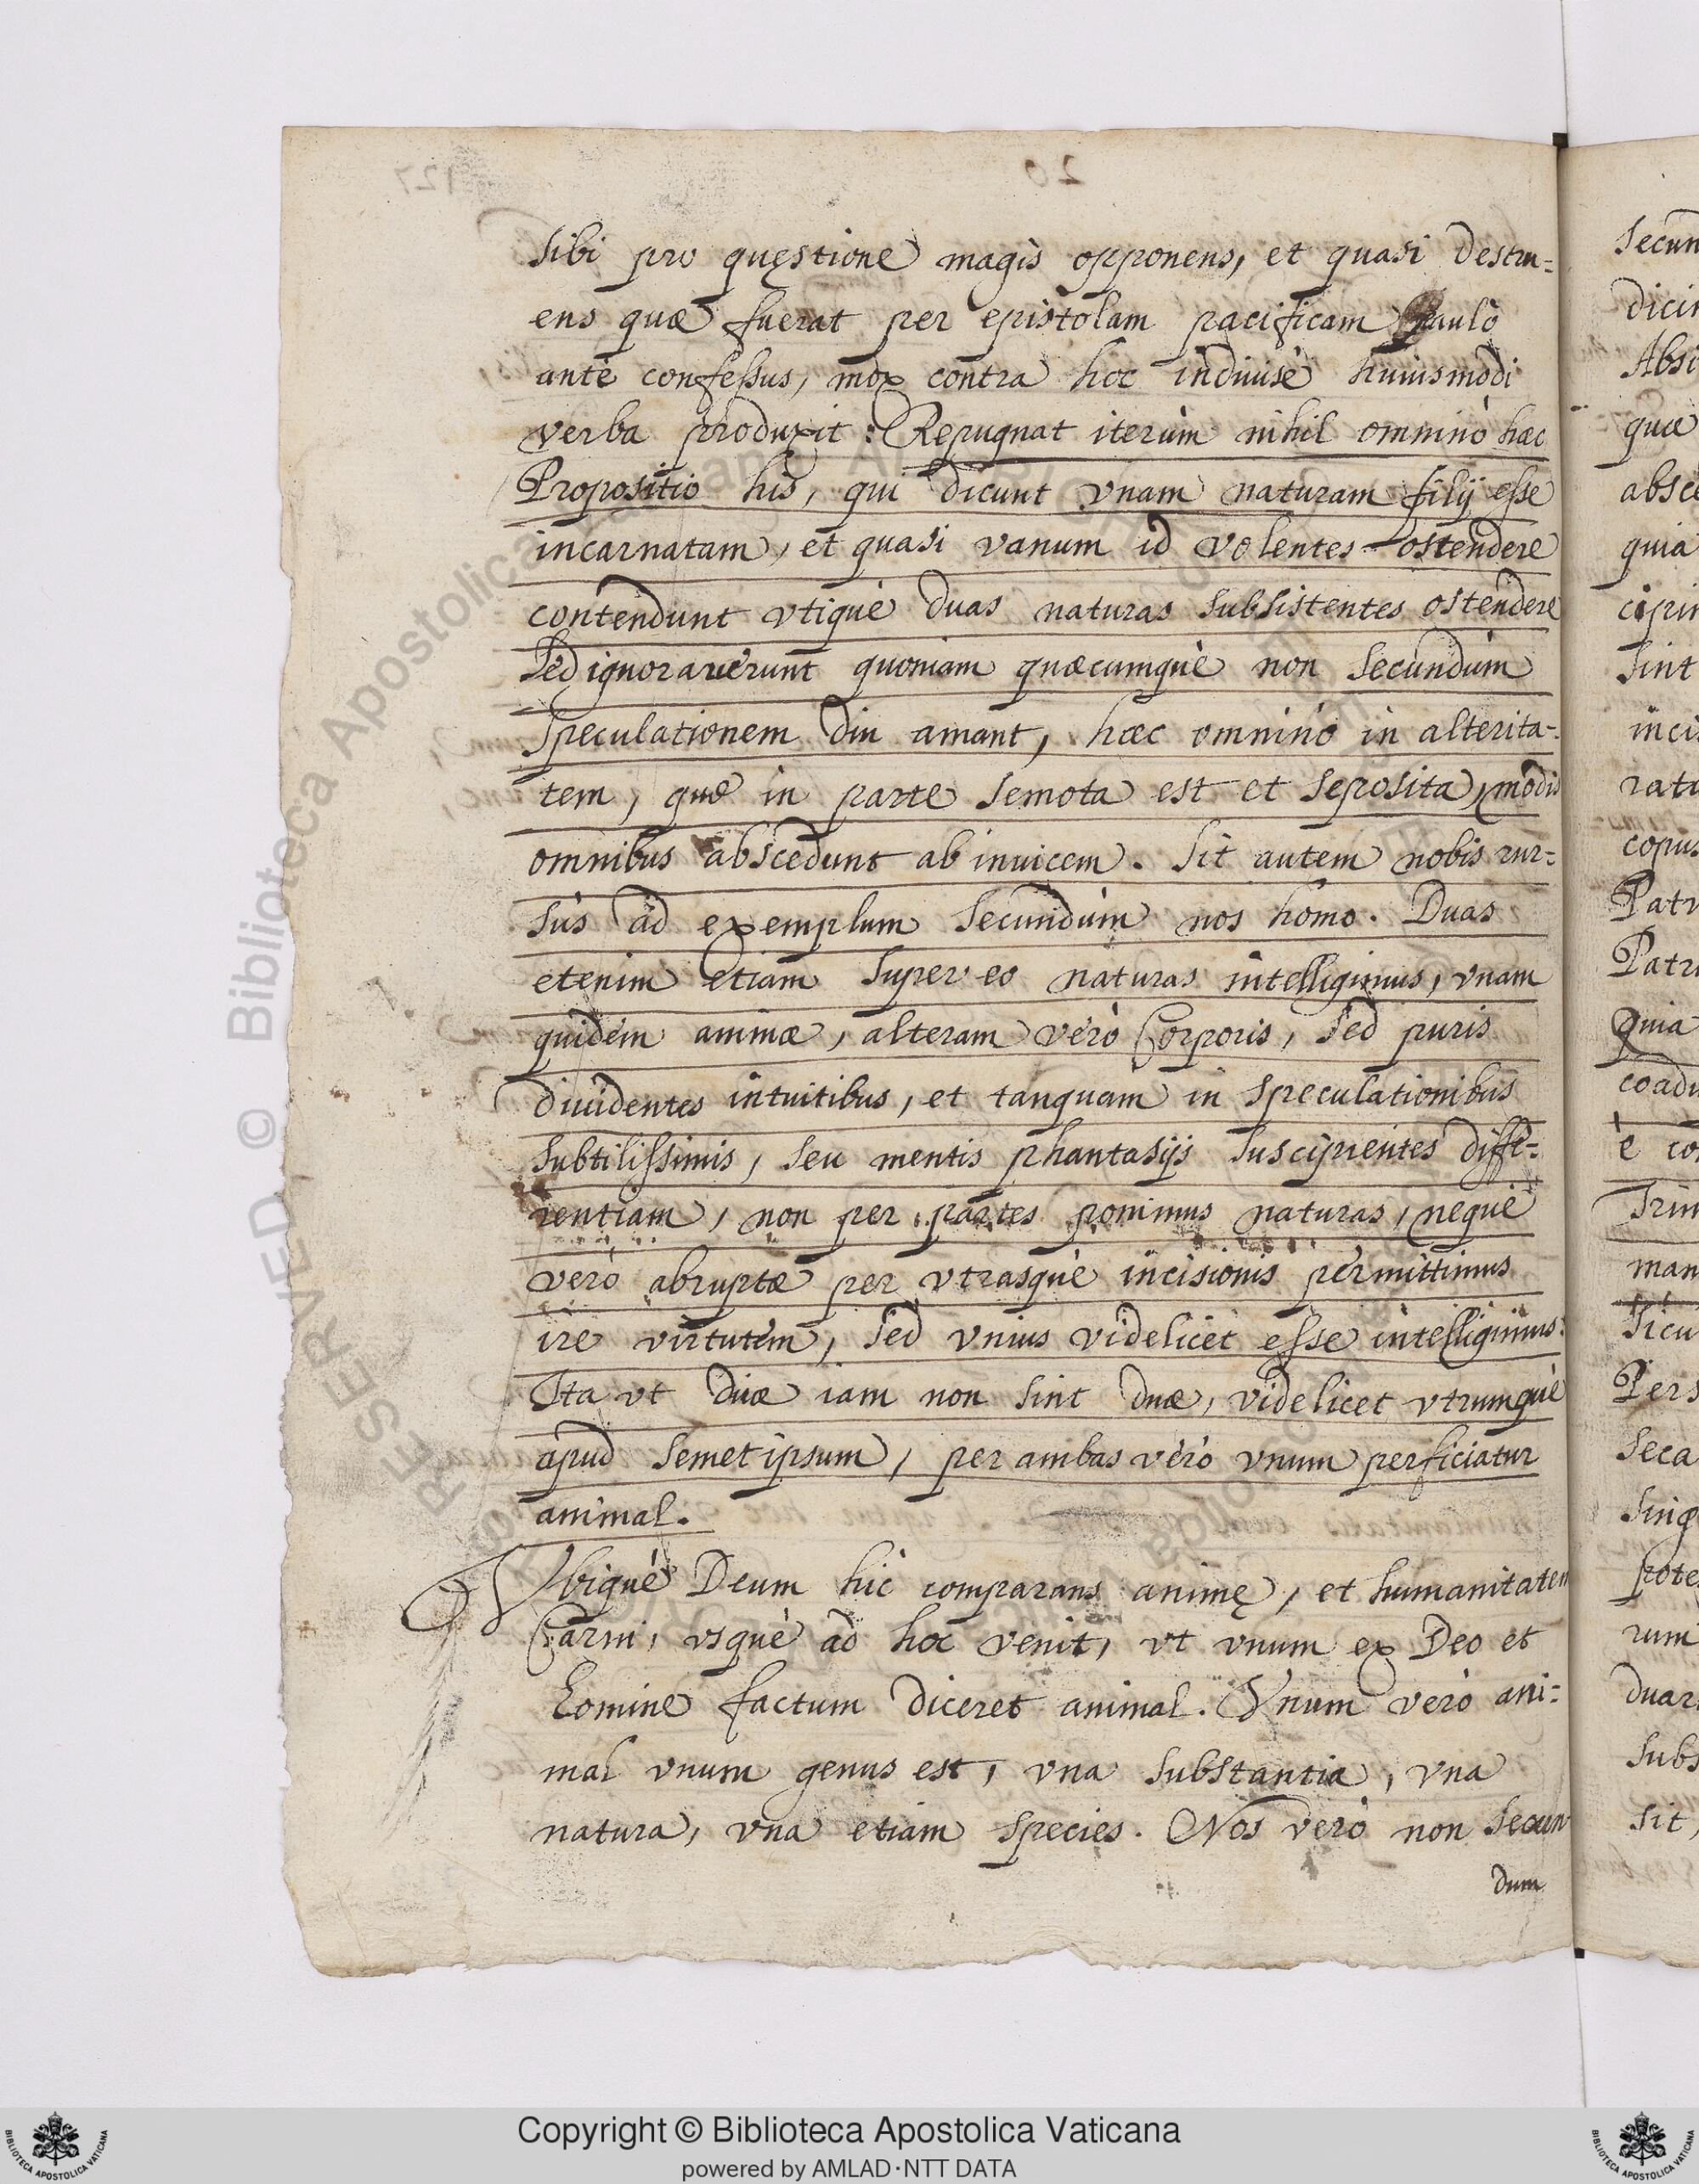 sibi pro quęstione magis opponens, et quasi destru=
ens quæ fuerat per epistolam pacificam paulò
antè confessus, mox contra hoc indiuisè huiusmodi
verba produxit: Repugnat iterùm nihil omninò hæc
Propositio his, qui dicunt vnam naturam filij esse
incarnatam, et quasi vanum id volentes ostendere
contendunt vtiquè duas naturas subsistentes ostendere
Sed ignorauerunt quoniam quæcumquè non secundùm
speculationem diu amant, hæc omninò in alterita=
tem, quæ in parte semota est et seposita, modis
omnibus abscedunt ab inuicem. Sit autem nobis rur=
sùs ad exemplum secundùm nos homo. Duas
etenim etiam super eo naturas intelligimus, vnam
quidem animæ, alteram verò Corporis, sed puris
diuidentes intuitibus, et tanquam in speculationibus
subtilissimis, seu mentis phantasijs suscipientes diffe=
rentiam, non per partes ponimus naturas, nequè
verò abruptæ per vtrasquè incisionis permittimus
ire virtutem, sed vnius videlicet esse intelligimus:
Ita vt duæ iam non sint duæ, videlicet vtrumquè
apud semetipsum, per ambas verò vnum perficiatur
animal.
Vbiquè Deum hìc comparans animę, et humanitatem
Carni, vsquè ad hoc venit, vt vnum ex Deo et
homine factum diceret animal. Vnum verò ani=
mal vnum genus est, vna substantia, vna
natura, vna etiam species. Nos verò non secun
dum
secun
dicin
Absi
quæ
absce
quia
sint
incis
ratu
copus
Patr
Patri
Quia
coadu
è co
Trin
man
sicu
Pers
seca
sing
pote
rum
duar
subs
sit,
20
127
RESERVED © Biblioteca Apostolica Vaticana
Copyright © Biblioteca Apostolica Vaticana
powered by AMLAD·NTT DATA
BIBLIOTECA APOSTOLICA VATICANA
BIBLIOTECA APOSTOLICA VATICANA